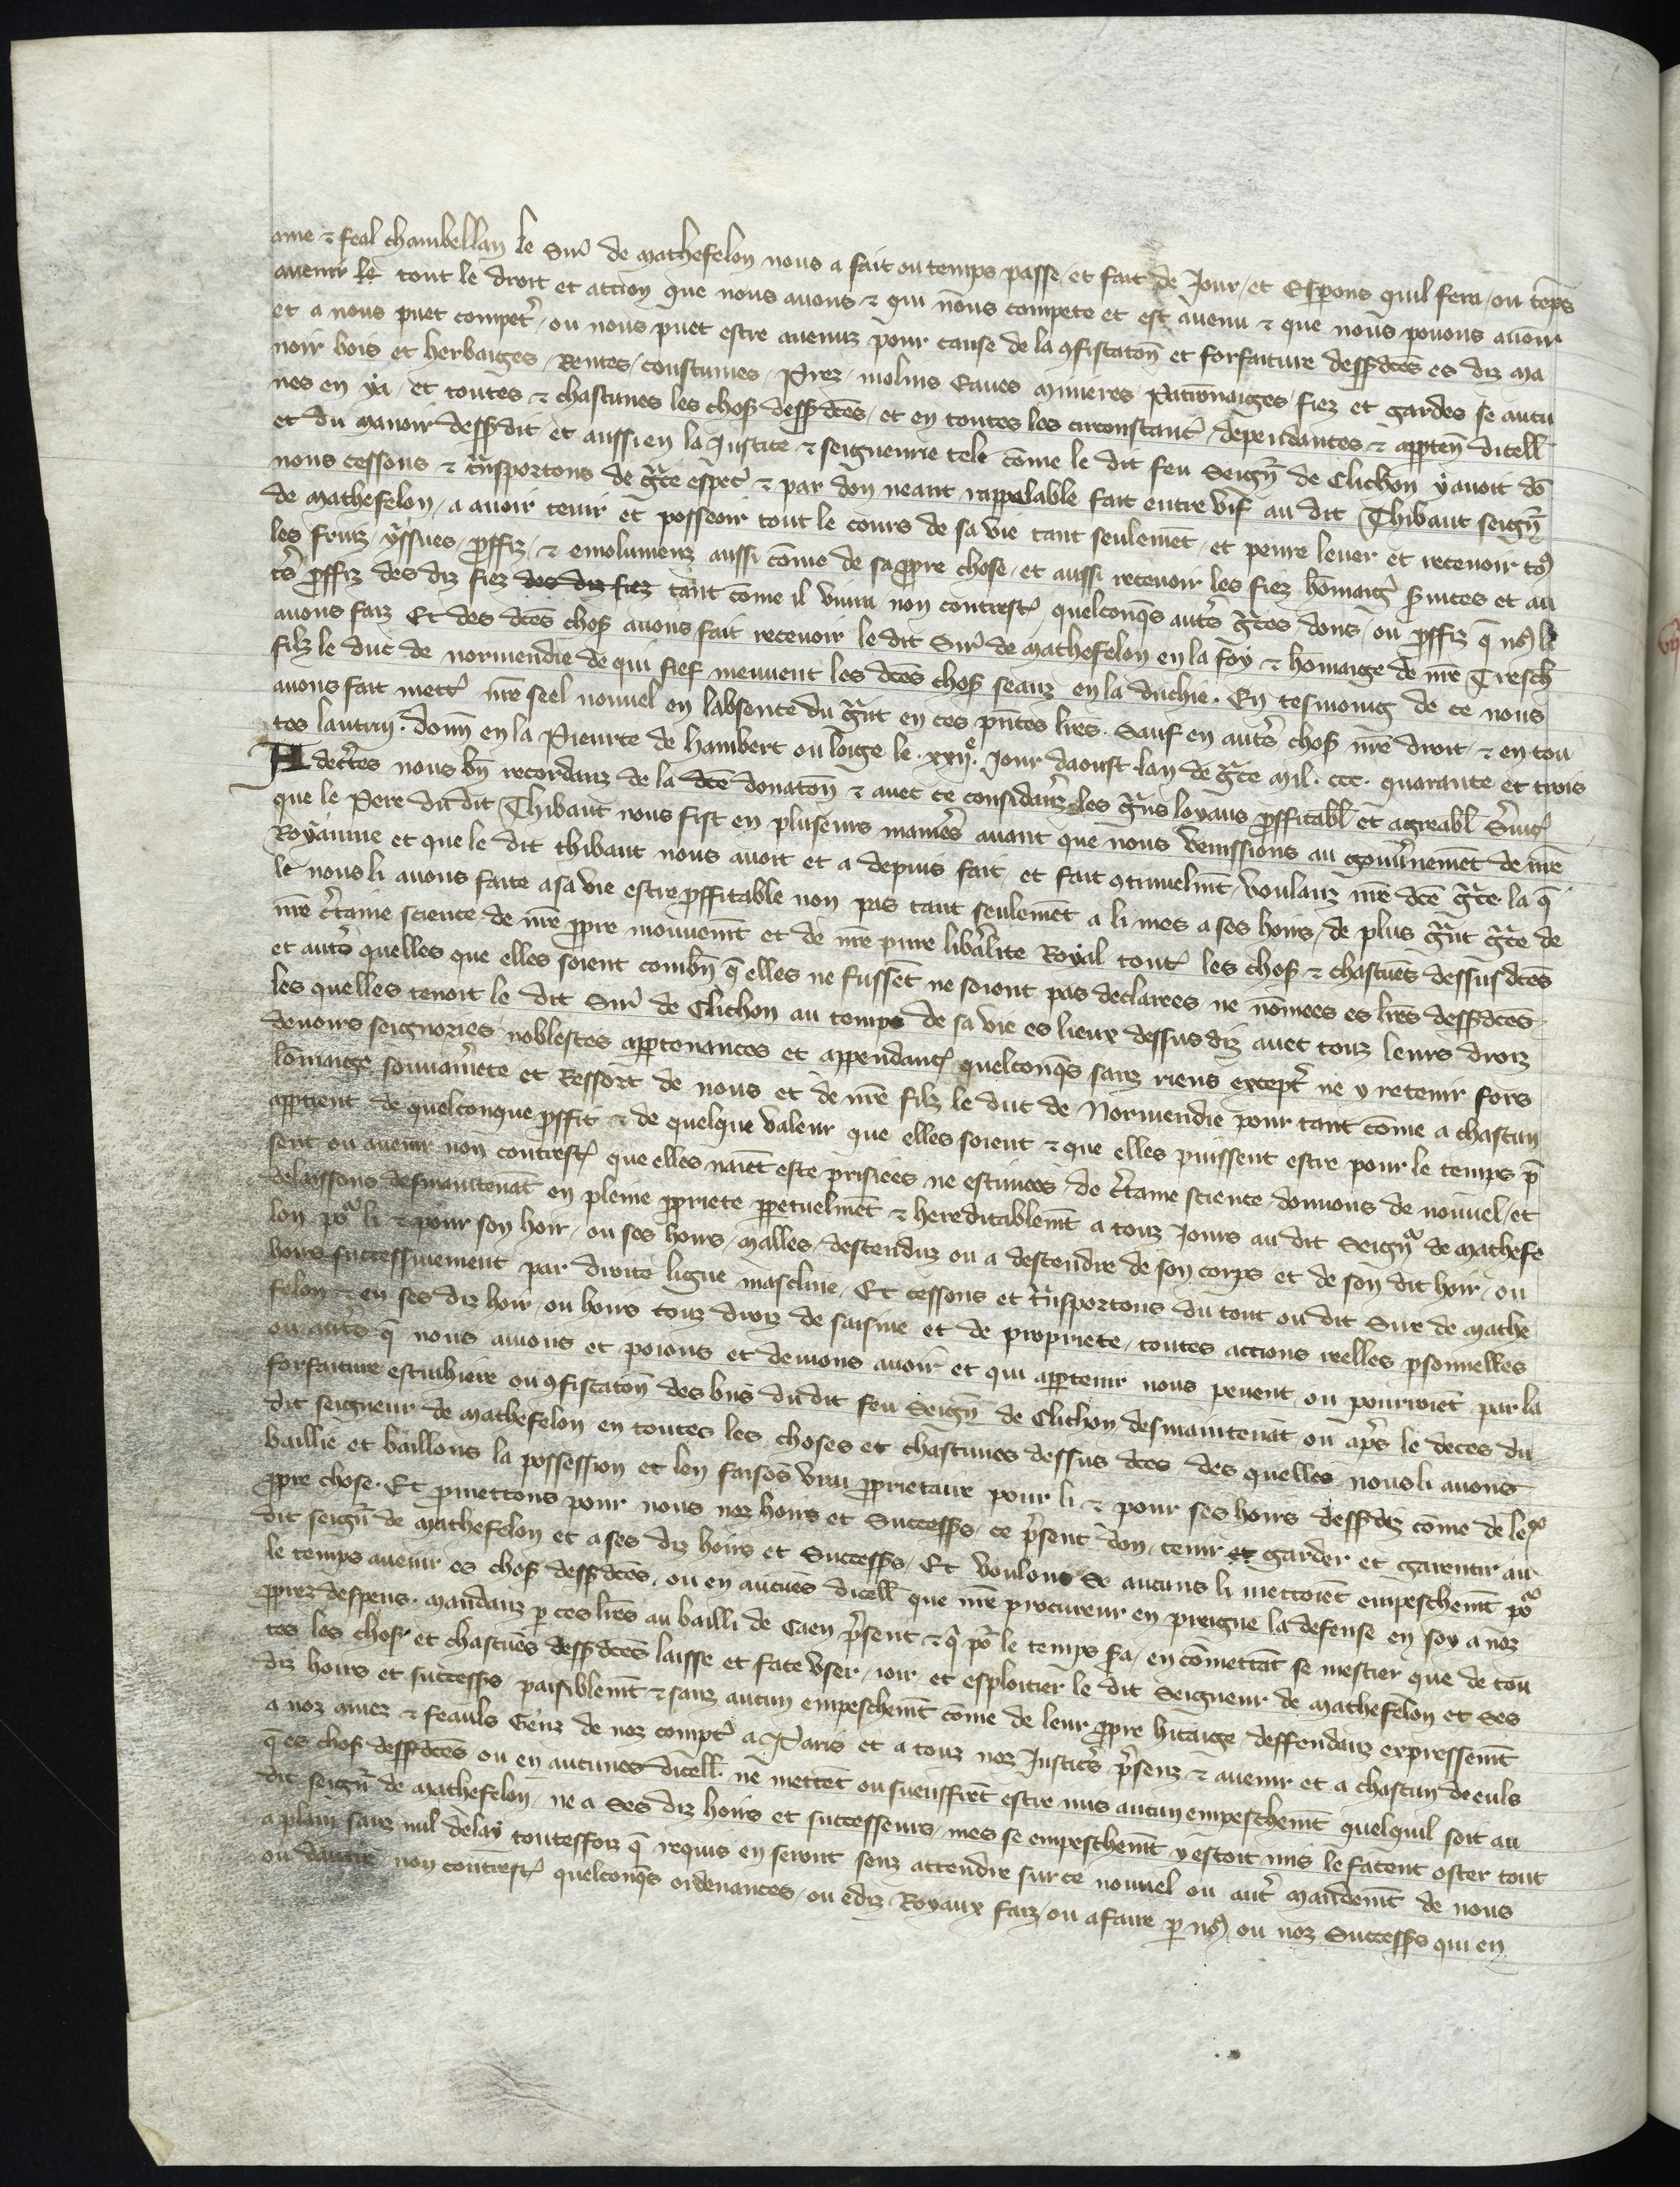 ame ⁊ feal chambellan le Sire de Mathefelon nous a fait ou temps passe et fait de Jour et Espons quil fera ou teps
auenir le tout le droit et action que nous auons ⁊ qui nous compete et est auenu ⁊ que nous pouons auoir
et a nous puet compet̉ ou nous puet estre auenuz pour cause de la ꝯfiscatoñ et forfaiture dessusd̃ces es diz ma
noir bois et herbaiges Rentes coustumes Prez molins Eaues Minieres Patronaiges fiez et gardes se aucu
nes en ya et toutes ⁊ chascunes les chos̉ dessusd̃ces et en toutes les circonstanc̉ dependances ⁊ apꝑteñ dicell̃
et du manoir dessusdit et aussi en la Justice ⁊ seigneurie tele cõme le dit feu Seigñ de Clichon y auoit dõ
nous cessons ⁊ t̃nsportons de g̃ce esp̃ec̉ ⁊ par don neant rappelable fait entre vif au dit Thibaut seigñ
de Mathefelon a auoir tenir et posseoir tout le cours de sa vie tant seulemẽt et penre leuer et receuoir to⁹
les fruiz yssues ꝓffiz ⁊ emolumenz aussi cõme de sa ꝓpre chose et aussi receuoir les fiez hõmaig̉ ẜuices et au
t̉s ꝓffiz des diz fiez des diz fiez tant cõme il viura non contrest̉ quelconq̃s aut̉s g̃ces dons ou ꝓffiz q̃ no⁹ li
auons faiz Et des d̃ces chos̉ auons fait receuoir le dit Sire de Mathefelon en la foy ⁊ hõmaige de nr̃e Tresch̃
filz le duc de normendie de qui fief meuuent les d̃ces chos̉ seanz en la duchie. En tesmoing de ce nous
auons fait mett̉ nr̃e seel nouuel en labsence du g̃nt en ces p̃ntes lr̃es. Sauf en aut̉s chos̉ nr̃e droit ⁊ en tou
tes lautruy. Donñ en la Prieurte de Hambert ou loige le .xxijᵉ. Jour daoust lan de g̃ce Mil. ccc. quarante et trois
Adecert̃es nous bñ recordanz de la d̃ce donatoñ ⁊ auec ce considanz les g̃ns loyaus ꝓffitabl̃ et agreabl̃ ẜuic̉
que le Pere dudit Thibaut nous fist en pluseurs manier̉s auant que nous venissions au gouũnemẽt de nr̃e
Royaume et que le dit Thibaut nous auoit et a depuis fait et fait ꝯtinuelmt̃ voulanz nr̃e d̃ce g̃ce la q̃
le nous li auons faite a sa vie estre ꝓffitable non pas tant seulemẽt a li mes a ses hoirs de plus g̃nt g̃ce de
nr̃e c̉taine science de nr̃e ꝓpre mouuemt̃ et de nr̃e pure lib̉alite Royal tout̉ les chos̉ ⁊ chascũes dessusd̃ces
et aut̉s quelles que elles soient combñ q̃ elles ne fussẽt ne soient pas declarees ne nõmees es lr̃es dessusd̃ces
les quelles tenoit le dit Sire de Clichon au temps de sa vie es lieux dessus diz auec touz leurs droiz
deuoirs seignories noblesces apꝑtenances et appendanc̉ quelconq̃s sanz riens except̉ ne y retenir fors
lõmaige souuerainete et Ressort de nous et de nr̃e filz le duc de Normendie pour tant cõme a chascun
apꝑtient de quelconque ꝓffit ⁊ de quelque valeur que elles soient ⁊ que elles puissent estre pour le temps p̃
sent ou auenir non contrest̉ que elles naiẽt este prisiees ne estimees de c̉taine science donnons de nouuel et
delaissons desmaintenãt en pleine ꝓpriete ꝑpetuelmẽt ⁊ hereditablemt̃ a touz Jours au dit Seignᵘʳ de Mathefe
lon poʳ li ⁊ pour son hoir ou ses hoirs malles descenduz ou a descendre de son corps et de son dit hoir ou
hoirs successiuement par droite ligne masculine Et cessons et t̃nsportons du tout ou dit Sire de Mathe
felon ⁊ en ses diz hoir ou hoirs touz droiz de saisine et de propriete toutes actions reelles ꝑsonnelles
ou aut̉s q̃ nous auons et poions et deuions auoir et qui apꝑtenir nous peuent ou pourroiẽt par la
forfaiture escruhiere ou ꝯfiscatoñ des bñs dudit feu Seigñ de Clichon desmaintenãt ou ap̉s le deces du
dit seigneur de Mathefelon en toutes les choses et chascunes dessus d̃ces des quelles nous li auons
baillie et baillons la possession et len faisons vray ꝓprietaire pour li ⁊ pour ses hoirs dessusdiz cõme de leʳ
ꝓpre chose. Et ꝓmettons pour nous noz hoirs et Successʳs ce p̉sent don tenir et garder et garentir au
dit seigñ de Mathefelon et a ses diz hoirs et Successʳs Et voulons se aucuns li mettoiẽt empeschemt̃ poʳ
le temps auenir es chos̉ dessusd̃ces ou en aucũes dicell̃ que nr̃e procureur en preigne la defense en soy a noz
ꝓprez despens. Mandanz ꝑ ces lr̃es au bailli de Caen p̉sent ⁊ q̉ poʳ le temps ẜa en cõmettãt se mestier que de tou
tes les chos̉ et chascũes dessusd̃ces laisse et face vser ioir et esploitier le dit Seigneur de Mathefelon et ses
diz hoirs et successʳs paisiblemt̃ ⁊ sanz aucun empeschemt̃ cõme de leur ꝓpre hitaige deffendanz expressemt̃
a noz amez ⁊ feauls Genz de noz compt̉ a Paris et a touz noz Justic̉s p̉senz ⁊ auenir et a chascun deeuls
q̃ es chos̉ dessusd̃ces ou en aucunes dicell̃ ne mettẽt ou sueuffrẽt estre mis aucun empeschemt̃ quelquil soit au
dit seigñ de Mathefelon ne a ses diz hoirs et successeurs mes se empeschemt̃ y estoit mis le facent oster tout
a plain sanz nul delay toutesfoiz q̃ requis en seront senz attendre sur ce nouuel ou aut̉ mandemt̃ de nous
ou dautre non contrest̉ quelconq̃s ordenances ou ediz Royaux faiz ou afaire ꝑ no⁹ ou noz Successʳs qui en